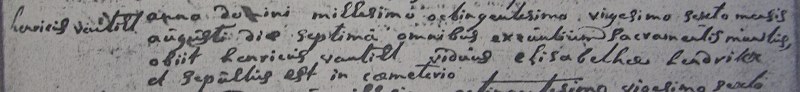 henricus vantilt
anno domini millesimo octingentesimo vigesimo sexto mensis
augusti die septima omnibus exeuntium sacramentis munitus,
obiit henricus vantilt viduus elisabetha hendrikx
et sepultus est in cœmeterio
octingentesimo vigesimo sexto